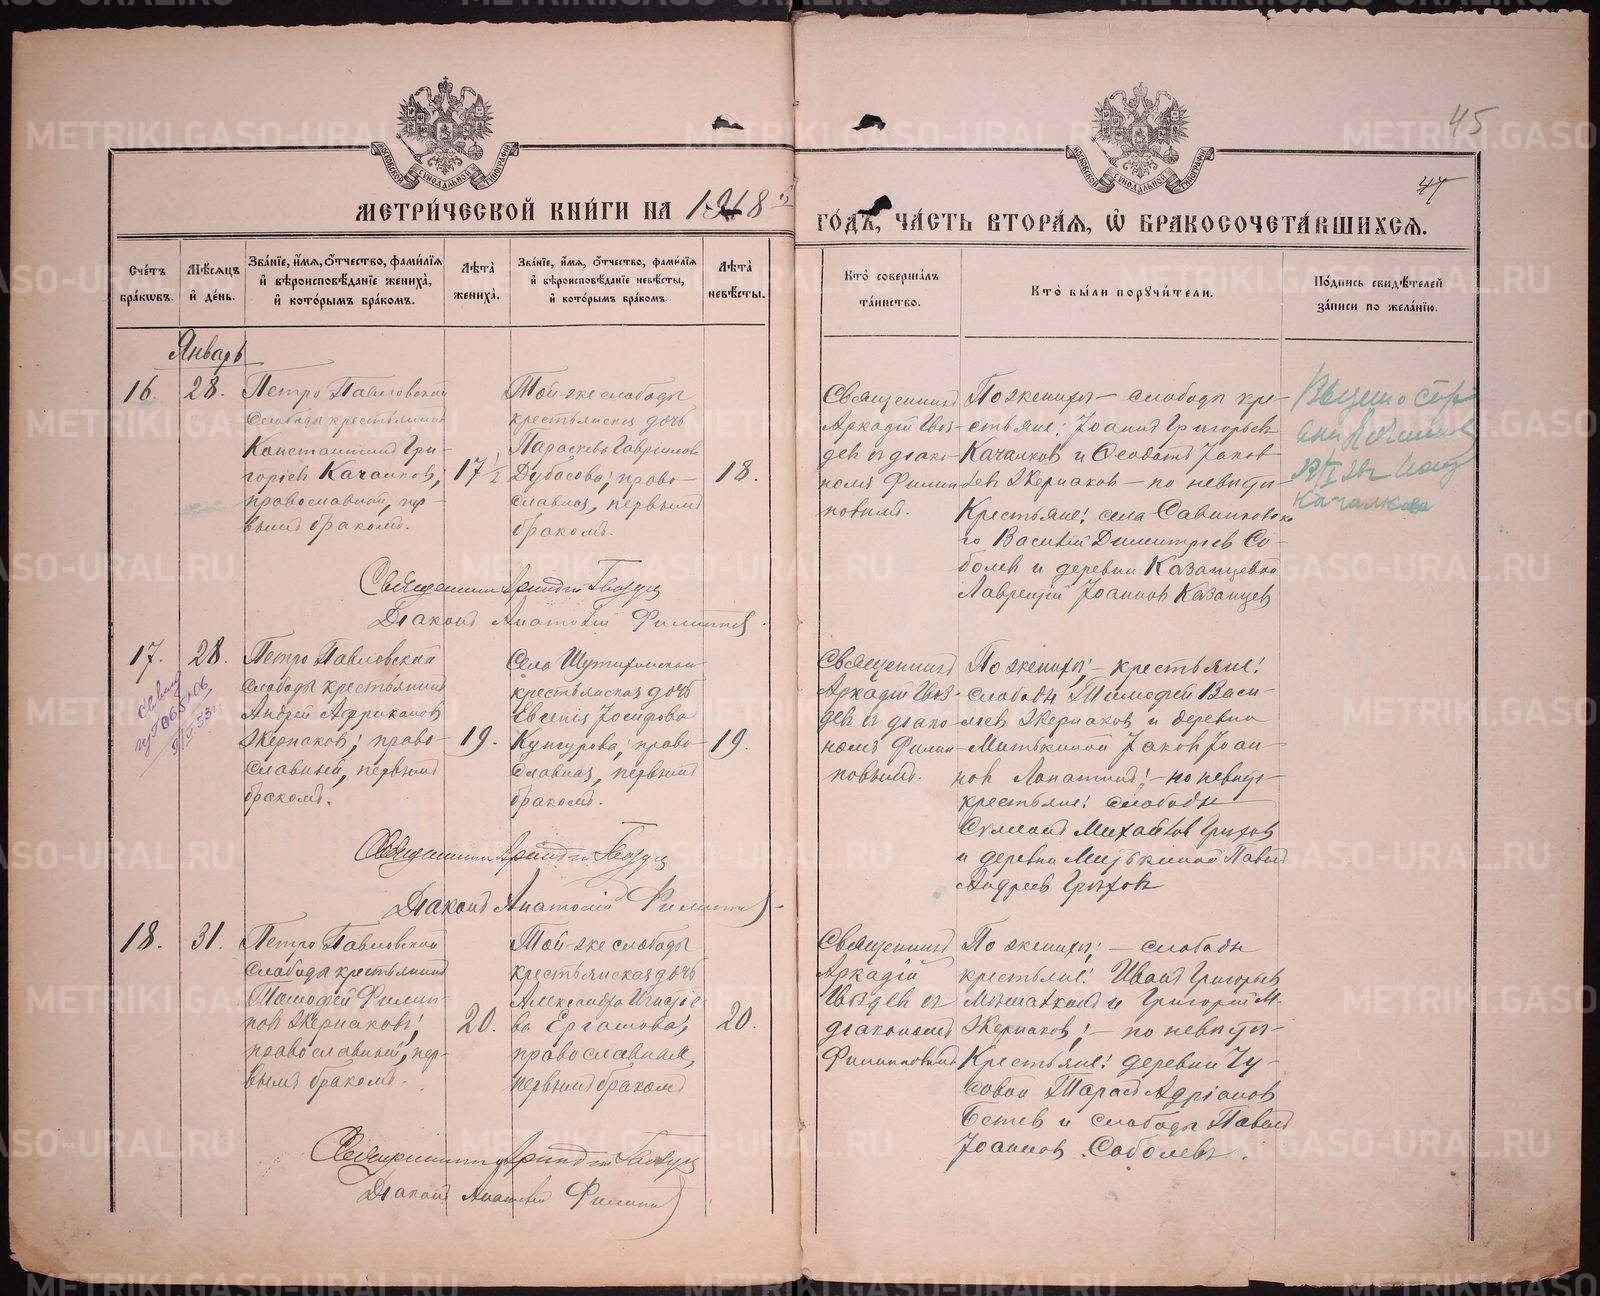 45
47
МЕТРИ́ЧЕСКОЙ КНИ́ГИ НА 1918 ГО́ДЪ, ЧА́СТЬ ВТОРА́Я, Ѡ҆ БРАКОСОЧЕТА́ВШИХСЯ.
Сче́тъ бра́кѡвъ.
Мѣ́сяцъ и҆ де́нь.
Зва́нїе, и҆́мя, ѻ҆́тчество, фами́лїя и҆ вѣроисповѣ́данїе жениха̀, и҆ кото́рымъ бра́комъ.
Лѣ́та жениха̀.
Зва́нїе, и҆́мя, ѻ҆́тчество, фами́лїя и҆ вѣроисповѣ́данїе невѣ́сты, и҆ кото́рымъ бра́комъ.
Лѣ́та невѣ́сты.
Кто̀ соверша́лъ та́инство.
Кто̀ бы́ли порꙋчи́тели.
По́дпись свидѣ́телей за́писи по жела́нїю.
Январь
16.
28.
Петро Павловской
слободы крестьянинъ
Константинъ Гри-
горьев Качалков;
православной, пер-
вымъ бракомъ.
17 1/2
Той-же слободы
крестьянская дочь
Параскева Гаврилова
Дубасова; право-
славная, первымъ
бракомъ.
18.
Священникъ
Аркадій Гвоз-
дев съ діако-
помъ Филип-
повымъ.
По женихѣ – слободы кре-
стьяне: Іоаннъ Григорьев
Качалков и Ѳеодотъ Іаков-
лев Жернаков – по невѣстѣ –
Крестьяне: села Савинковска
го Василій Димитріев Со-
болев и деревни Казанцевой
Лаврентій Іоаннов Казанцев
Качалкова
Священникъ Аркадій Гвоздев
Діаконъ Анатолій Филиппов
17.
28.
Петро Павловской
слободы крестьянинъ
Андрей Африканов
Жернаков; право-
славный, первымъ
бракомъ.
19.
Села Шутихинскаго
крестьянская дочь
Евгенія Іосифова
Кунгурова; право-
славная, первымъ
бракомъ.
19.
Священникъ
Аркадій Гвоз-
дев съ діако-
номъ Филип-
повымъ.
По женихѣ; – крестьяне:
слободы Тимофей Васи-
льев Жернаков и деревни
Митькиной Іаков Іоан-
нов Лопатинъ; – по невѣстѣ –
крестьяне: слободы
Симеонъ Михайлов Грехов
и деревни Митькиной Павелъ
Андреев Грехов
Священникъ Аркадій Гвоздев
Діаконъ Анатолій Филиппов
18.
31.
Петро Павловской
слободы крестьянинъ
Тимофей Филип-
пов Жернаковъ;
православный, пер-
вымъ бракомъ.
20.
Той-же слободы
крестьянская дочь
Александра Игнатіе-
ва Ергашова;
православная,
первымъ бракомъ
20.
Священникъ
Аркадій
Гвоздев съ
діакономъ
Филипповымъ
По женихѣ; – слободы
крестьяне: Иванъ Григорьев
и Григорій М.
Жернаков; – по невѣстѣ –
Крестьяне: деревни Чу-
совой Тарасъ Адріанов
Бетев и слободы Павелъ
Іоаннов Соболевъ.
Священникъ Аркадій Гвоздев
Діаконъ Анатолій Филиппов